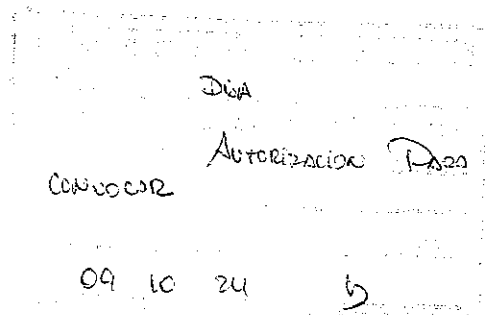 DIJA
AUTORIZACION PASO
CONVOCAR
09 10 24